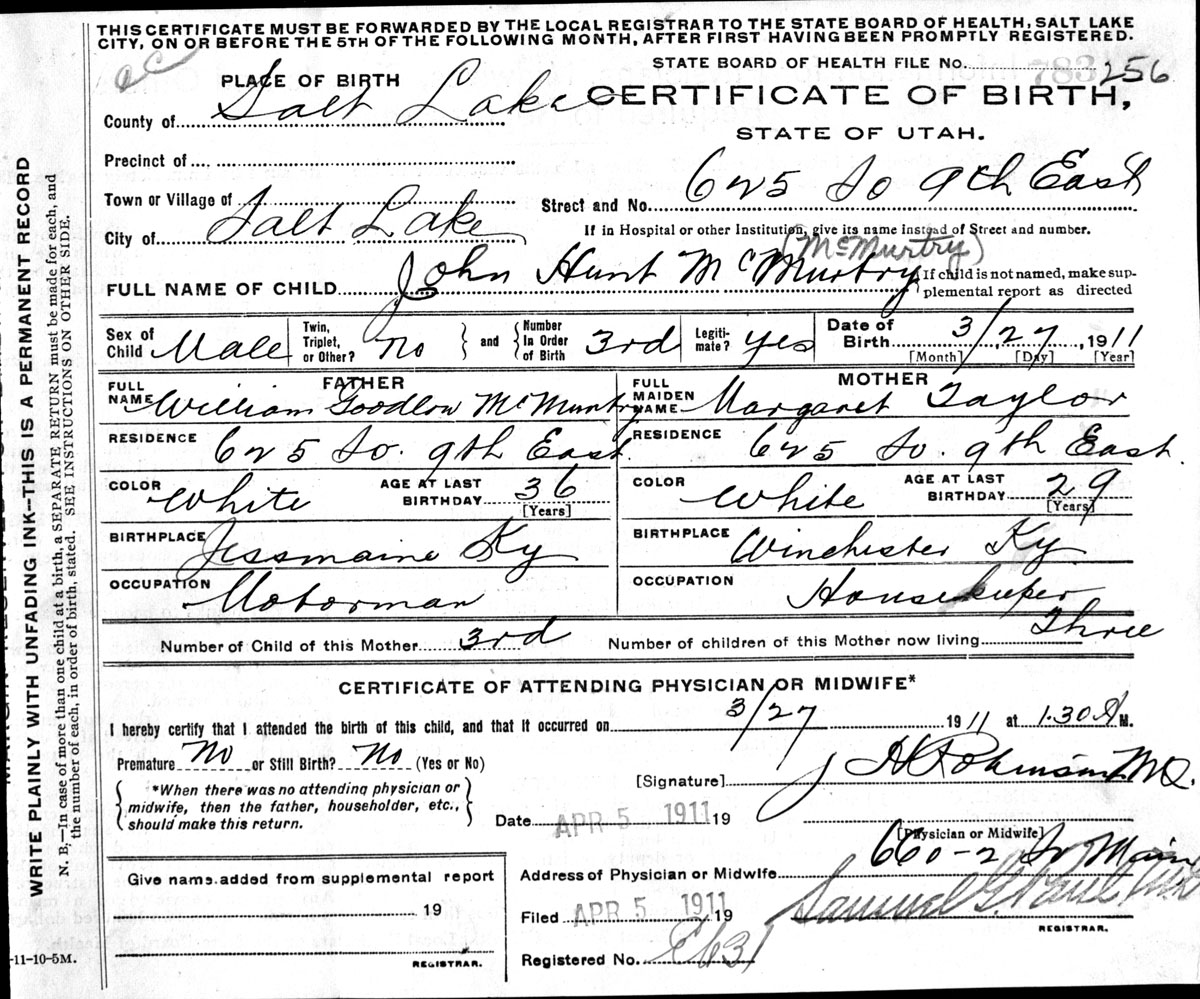 THIS CERTIFICATE MUST BE FORWARDED BY THE LOCAL REGISTRAR TO THE STATE BOARD OF HEALTH, SALT LAKE
CITY, ON OR BEFORE THE 5TH OF THE FOLLOWING MONTH, AFTER FIRST HAVING BEEN PROMPTLY REGISTERED.
STATE BOARD OF HEALTH FILE NO. 256
PLACE OF BIRTH
CERTIFICATE OF BIRTH,
County of Salt Lake
STATE OF UTAH.
Precinct of
Town or Village of
Street and No. 625 So 9th East
City of Salt Lake
If in Hospital or other Institution, give its name instead of Street and number.
(McMurtry)
FULL NAME OF CHILD John Hunt McMurtry
If child is not named, make sup-
plemental report as directed
Sex of Child Male
Twin, Triplet, or Other? No and
Number In Order of Birth 3rd
Legiti- mate? Yes
Date of Birth 3/27, 1911
[Month] [Day] [Year]
FATHER
FULL NAME William Goodlow McMurtry
RESIDENCE 625 So. 9th East.
COLOR White
AGE AT LAST BIRTHDAY 36 [Years]
BIRTHPLACE Jessmaine Ky
OCCUPATION Motorman
MOTHER
FULL MAIDEN NAME Margaret Taylor
RESIDENCE 625 So. 9th East.
COLOR White
AGE AT LAST BIRTHDAY 29 [Years]
BIRTHPLACE Winchester Ky
OCCUPATION Housekeeper
Number of Child of this Mother 3rd
Number of children of this Mother now living Three
CERTIFICATE OF ATTENDING PHYSICIAN OR MIDWIFE*
I hereby certify that I attended the birth of this child, and that it occurred on 3/27 1911 at 1.30 A M.
Premature No or Still Birth? No (Yes or No)
*When there was no attending physician or
midwife, then the father, householder, etc.,
should make this return.
[Signature] J H Robinson MD.
Date APR 5 1911 19
[Physician or Midwife]
Address of Physician or Midwife 660-2 So Main
Filed APR 5 1911 19
Samuel G. Paul
REGISTRAR.
Registered No. E631
Give name added from supplemental report
19
REGISTRAR.
-11-10-5M.
WRITE PLAINLY WITH UNFADING INK—THIS IS A PERMANENT RECORD
N. B.—In case of more than one child at a birth, a SEPARATE RETURN must be made for each, and
the number of each, in order of birth, stated. SEE INSTRUCTIONS ON OTHER SIDE.